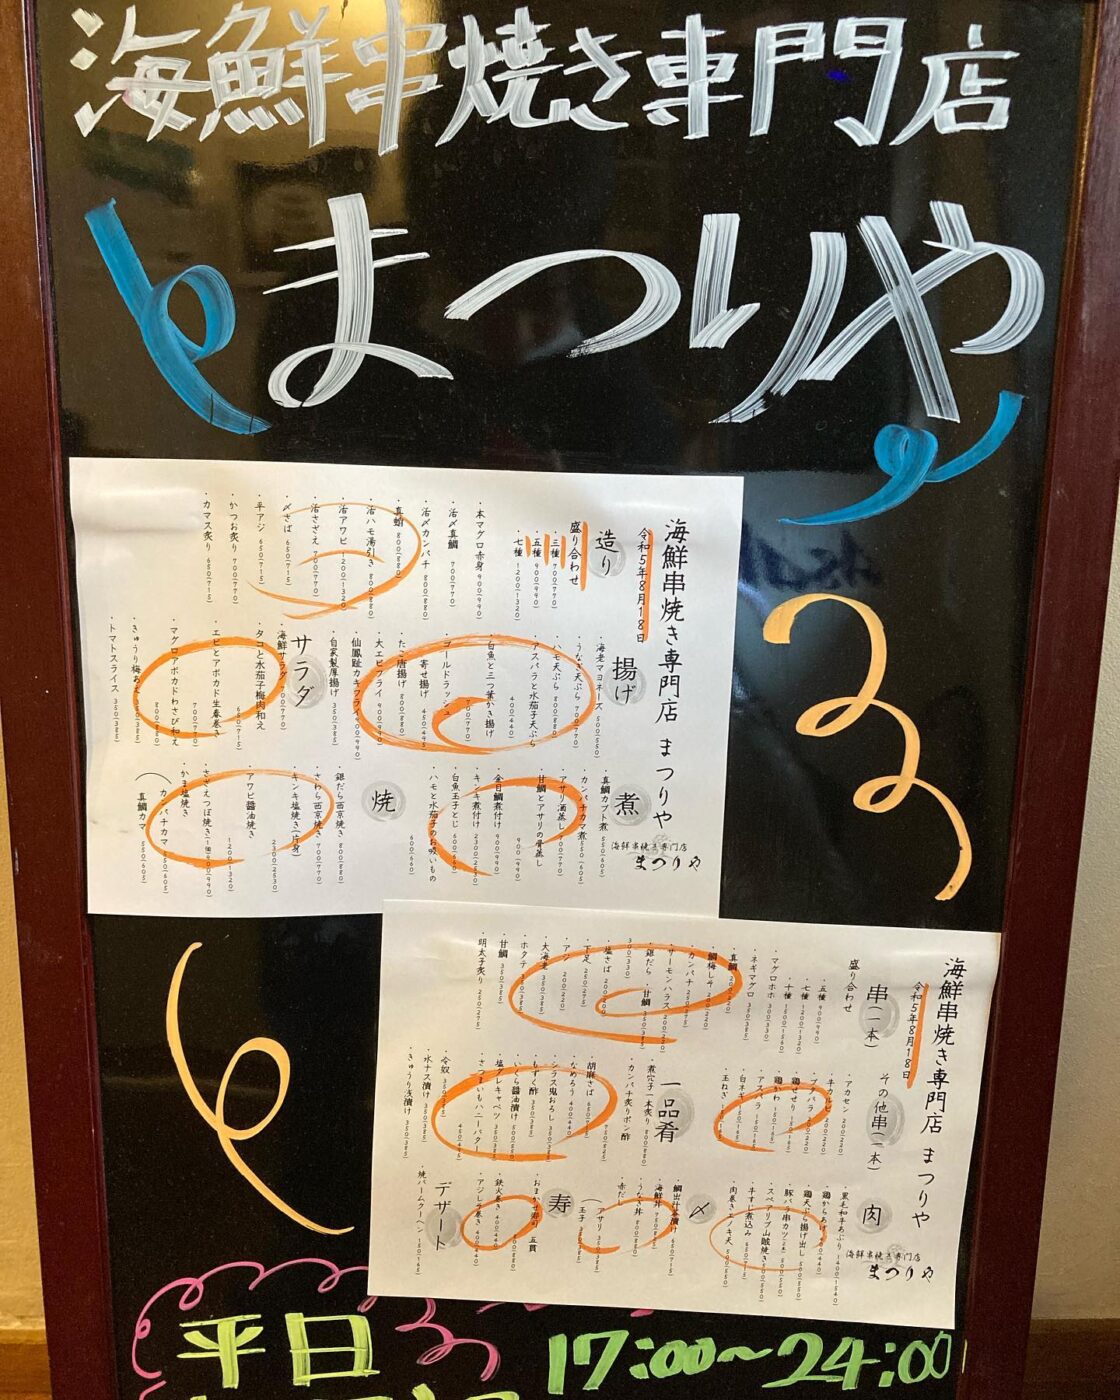 海鮮串焼き専門店
まつりや
海鮮串焼き専門店 まつりや
令和5年8月18日
造り
盛り合わせ
・三種 700(770)
・五種 900(990)
・七種 1200(1320)
・本マグロ赤身 900(990)
・活〆真鯛 700(770)
・活〆カンパチ 800(880)
・真蛸 800(880)
・活ハモ湯引き 800(880)
・活アワビ 1200(1320)
・活さざえ 700(770)
・〆さば 650(715)
・平アジ 650(715)
・かつお炙り 700(770)
・カマス炙り 650(715)
揚げ
・海老マヨネーズ 500(550)
・うなぎ天ぷら 700(770)
・ハモ天ぷら 800(880)
・アスパラと水茄子天ぷら 400(440)
・白魚と三つ葉かき揚げ 700(770)
・ゴールドラッシュ
寄せ揚げ 450(495)
・たこ唐揚げ 800(880)
・大エビフライ 900(990)
・仙鳳趾カキフライ 900(990)
・自家製厚揚げ 350(385)
サラダ
・海鮮サラダ 700(770)
・タコと水茄子梅肉和え
・エビとアボカド生春巻き 650(715)
・マグロアボカドわさび和え 800(880)
・きゅうり梅あえ 350(385)
・トマトスライス 350(385)
煮
・真鯛カブト煮 550(605)
・カンパチカマ煮 550(605)
・アサリ酒蒸し 700(770)
・甘鯛とアサリの骨蒸し 900(990)
・金目鯛煮付け 900(990)
・キンキ煮付け 2300(2530)
・白魚玉子とじ 600(660)
・ハモと水茄子のお吸いもの 600(660)
焼
・銀だら西京焼き 800(880)
・さわら西京焼き 700(770)
・キンキ塩焼き(片身) 2300(2530)
・アワビ醤油焼き 1200(1320)
・さざえつぼ焼き(1個) 900(990)
・かま塩焼き
カンパチカマ 550(605)
真鯛カマ 550(605)
海鮮串焼き専門店
まつりや
海鮮串焼き専門店 まつりや
令和5年8月18日
串(一本)
盛り合わせ
・五種 900(990)
・七種 1200(1320)
・十種 1500(1560)
・マグロホホ 300(330)
・ネギマグロ
・真鯛 200(220)
・鯛梅しそ 200(220)
・カンパチ 250(275)
・サーモンハラス 200(220)
・銀だら 300(330)
・甘鯛 350(385)
・塩さば 200(220)
・下足 250(275)
・アジ 200(220)
・大海老 350(385)
・ホタテ 350(385)
・甘鯛 350(385)
・明太子炙り 250(275)
その他串(一本)
・アカセン 200(220)
・牛カルビ 200(220)
・ブバラ 200(220)
・鶏せせり 150(165)
・鶏かわ 150(165)
・アスパラ 150(165)
・白ネギ 150(165)
・玉ねぎ 150(165)
一品肴
・煮穴子一本炙り 800(880)
・カンパチ炙りポン酢 750(825)
・胡麻さば 650(715)
・なめろう 400(440)
・シラス鬼おろし 350(385)
・もずく酢 350(385)
・いくら醤油漬け 500(550)
・塩ダレキャベツ 350(385)
・さつまいもハニーバター 450(495)
・冷奴 350(385)
・水ナス漬け 350(385)
・きゅうり浅漬け 350(385)
肉
・黒毛和牛あぶり 1400(1540)
・鶏からあげ 400(440)
・鶏天ぷら揚げ出し 500(550)
・豚バラ串カツ 500(550)
・スペアリブ山賊焼き 500(550)
・牛すじ煮込み 650(715)
・肉巻きエノキ天 500(550)
〆
・鯛出汁茶漬け 650(715)
・海鮮丼 750(825)
・うなぎ丼 800(880)
・赤だし
(アサリ 350(385)
(玉子 350(385)
寿
・おまかせ寿司 五貫 800(880)
・鉄火巻き 400(440)
・アジしそ巻き 400(440)
デザート
・焼バームクーヘン 150(165)
海鮮串焼き専門店
まつりや
平日 17:00~24:00